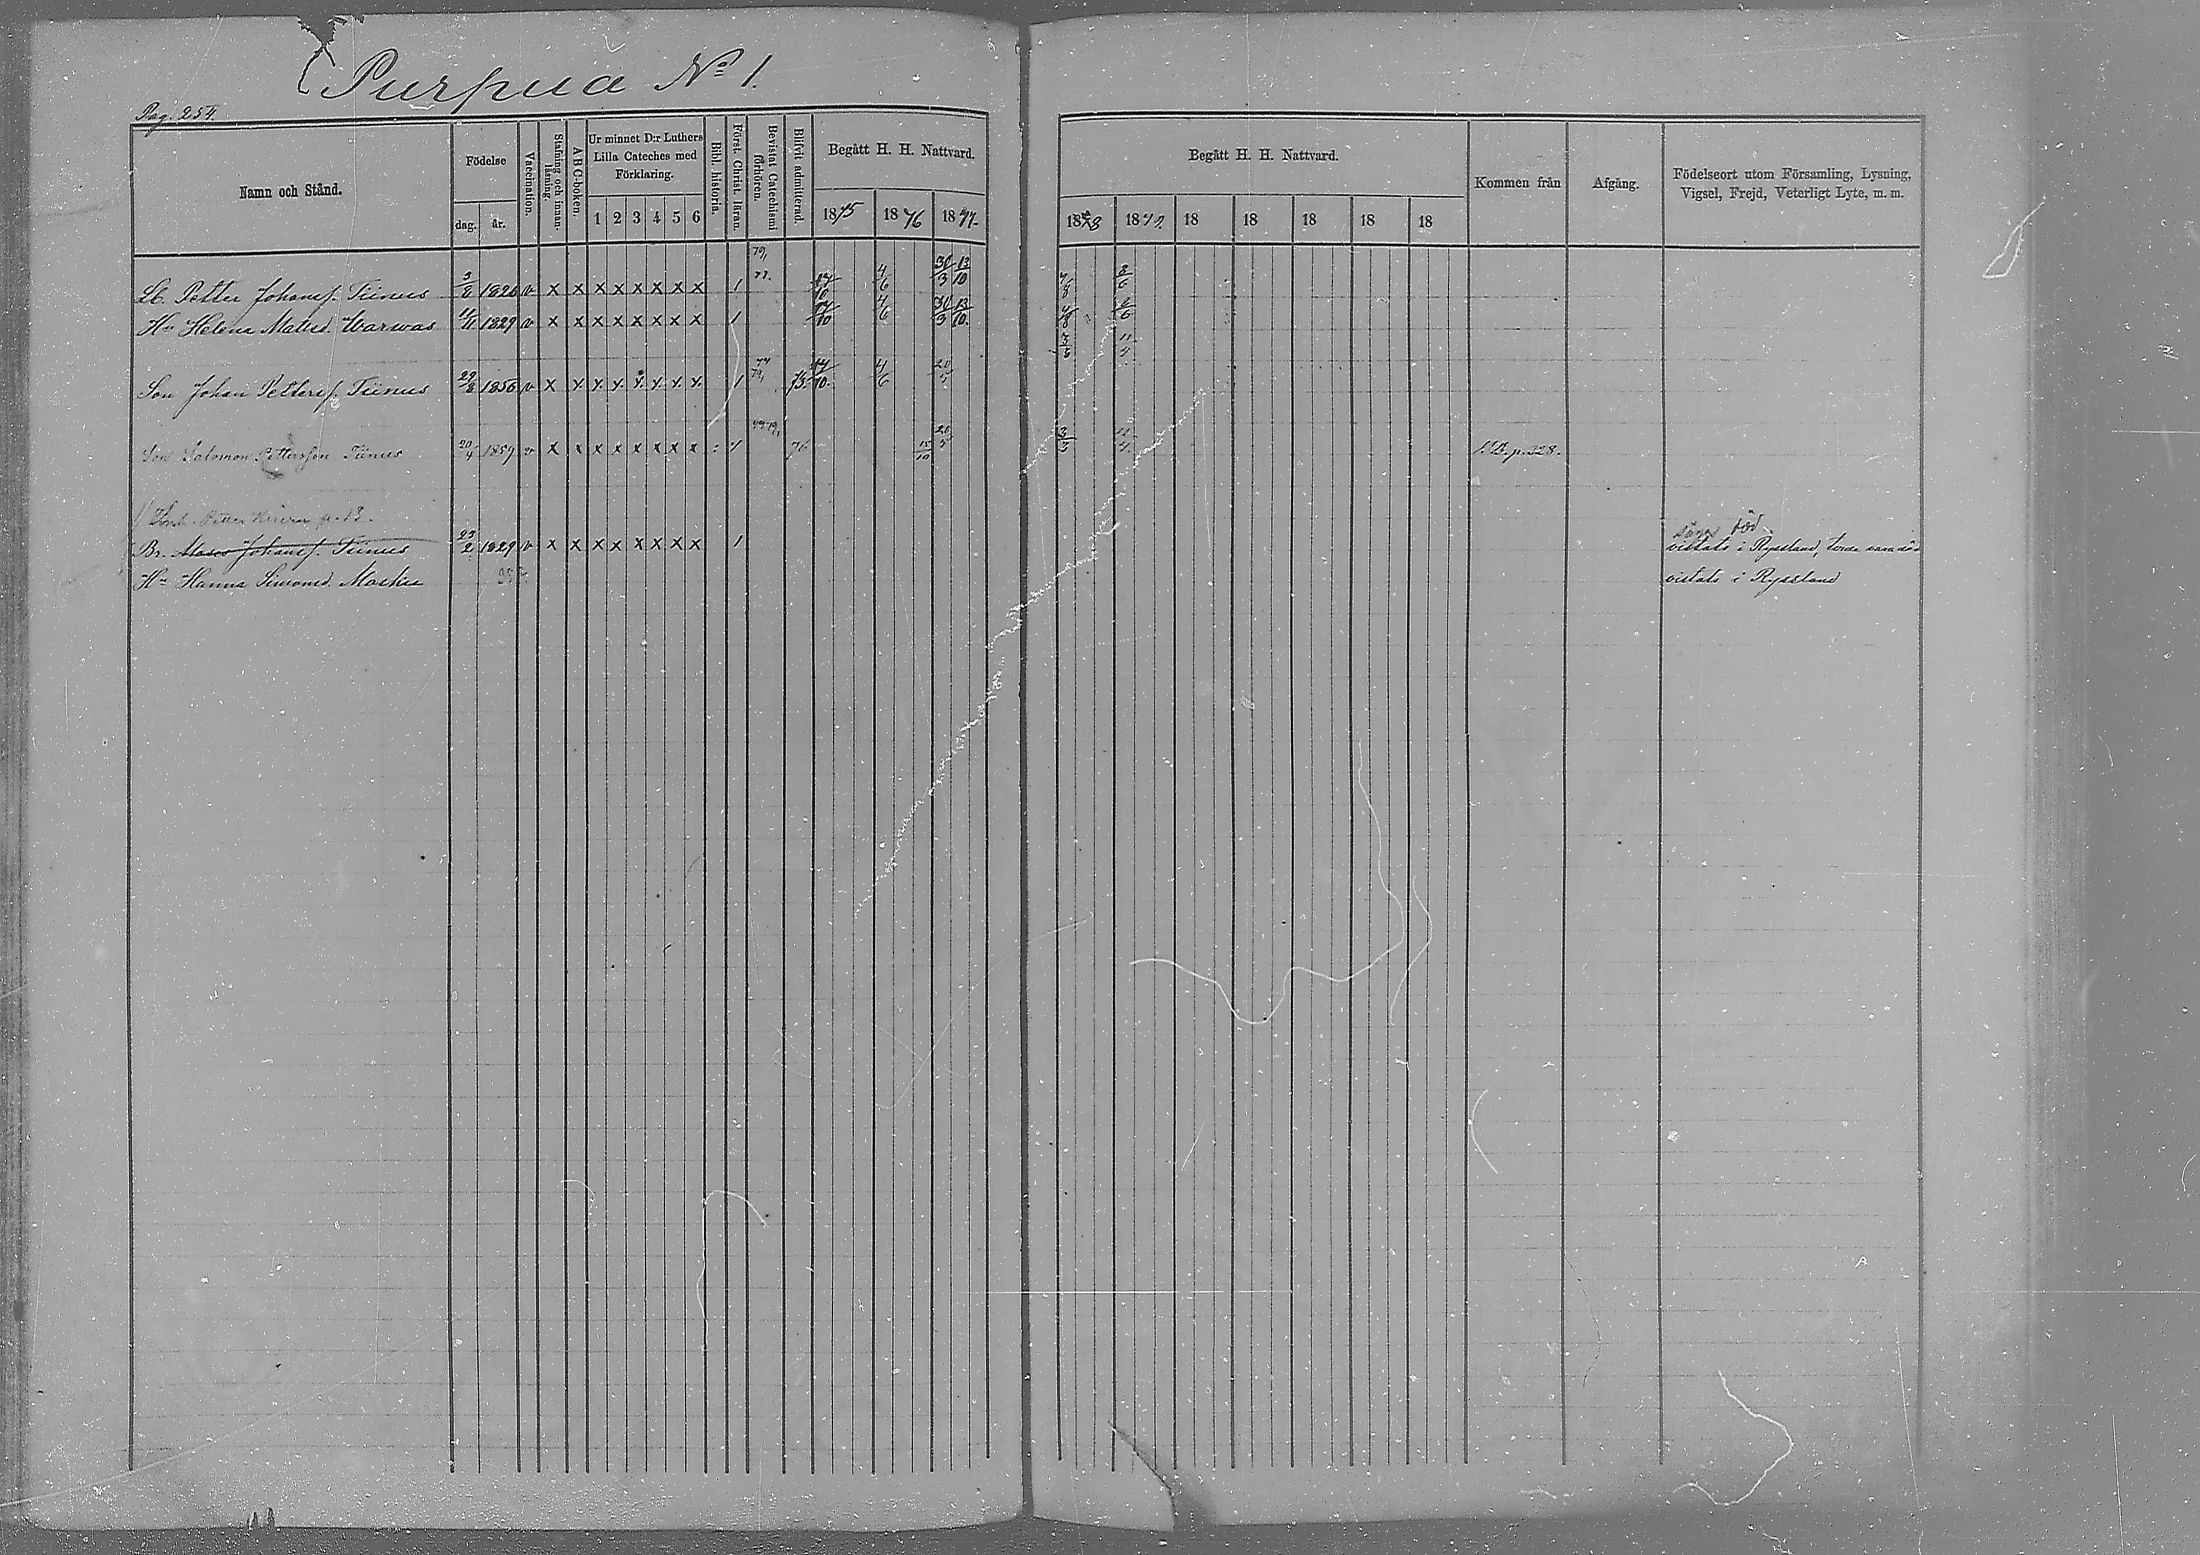 Purpua No 1.
Pag. 254.
Namn och Stånd.
Födelse
dag. år.
Vaccination.
Stafning och innanläsning.
A B C-boken.
Ur minnet D:r Luthers Lilla Cateches med Förklaring.
1 2 3 4 5 6
Bibl. historia.
Först. Christ. läran.
Bevistat Catechismi förhören.
Blifvit admitterad.
Begått H. H. Nattvard.
1875 1876 1877.
Begått H. H. Nattvard.
1878 1879. 18 18 18 18 18
Kommen från
Afgång.
Födelseort utom Församling, Lysning,
Vigsel, Frejd, Veterligt Lyte, m. m.
Petter Johansf. Tiinus 3/8 1826 v x x x x x x x x 1 79, 77. 4/6 30/3 13/10 8/6
Hu Helena Matsd. Warwas 11/11 1829 v x x x x x x x x 1 17/10 4/6 30/3 13/10. 8/6
3/3 11/4
Son Johan Pettersf. Tiinus 29/8 1856 v x x x x x x x x 1 77 79, 75. 17/10. 4/6 20/5
Son Salomon Pettersson Tiinus 20/4 1859 v x x x x x x x x : 1 76 15/10 20/5 3/3 11/4. p. 328.
Petter p. 13.
Br. Moses Johansf. Tiinus 23/2 1829 v x x x x x x x x 1 död
vistats i Ryssland, torde vara död
Hu Hanna Simonsd. Masku vistats i Ryssland